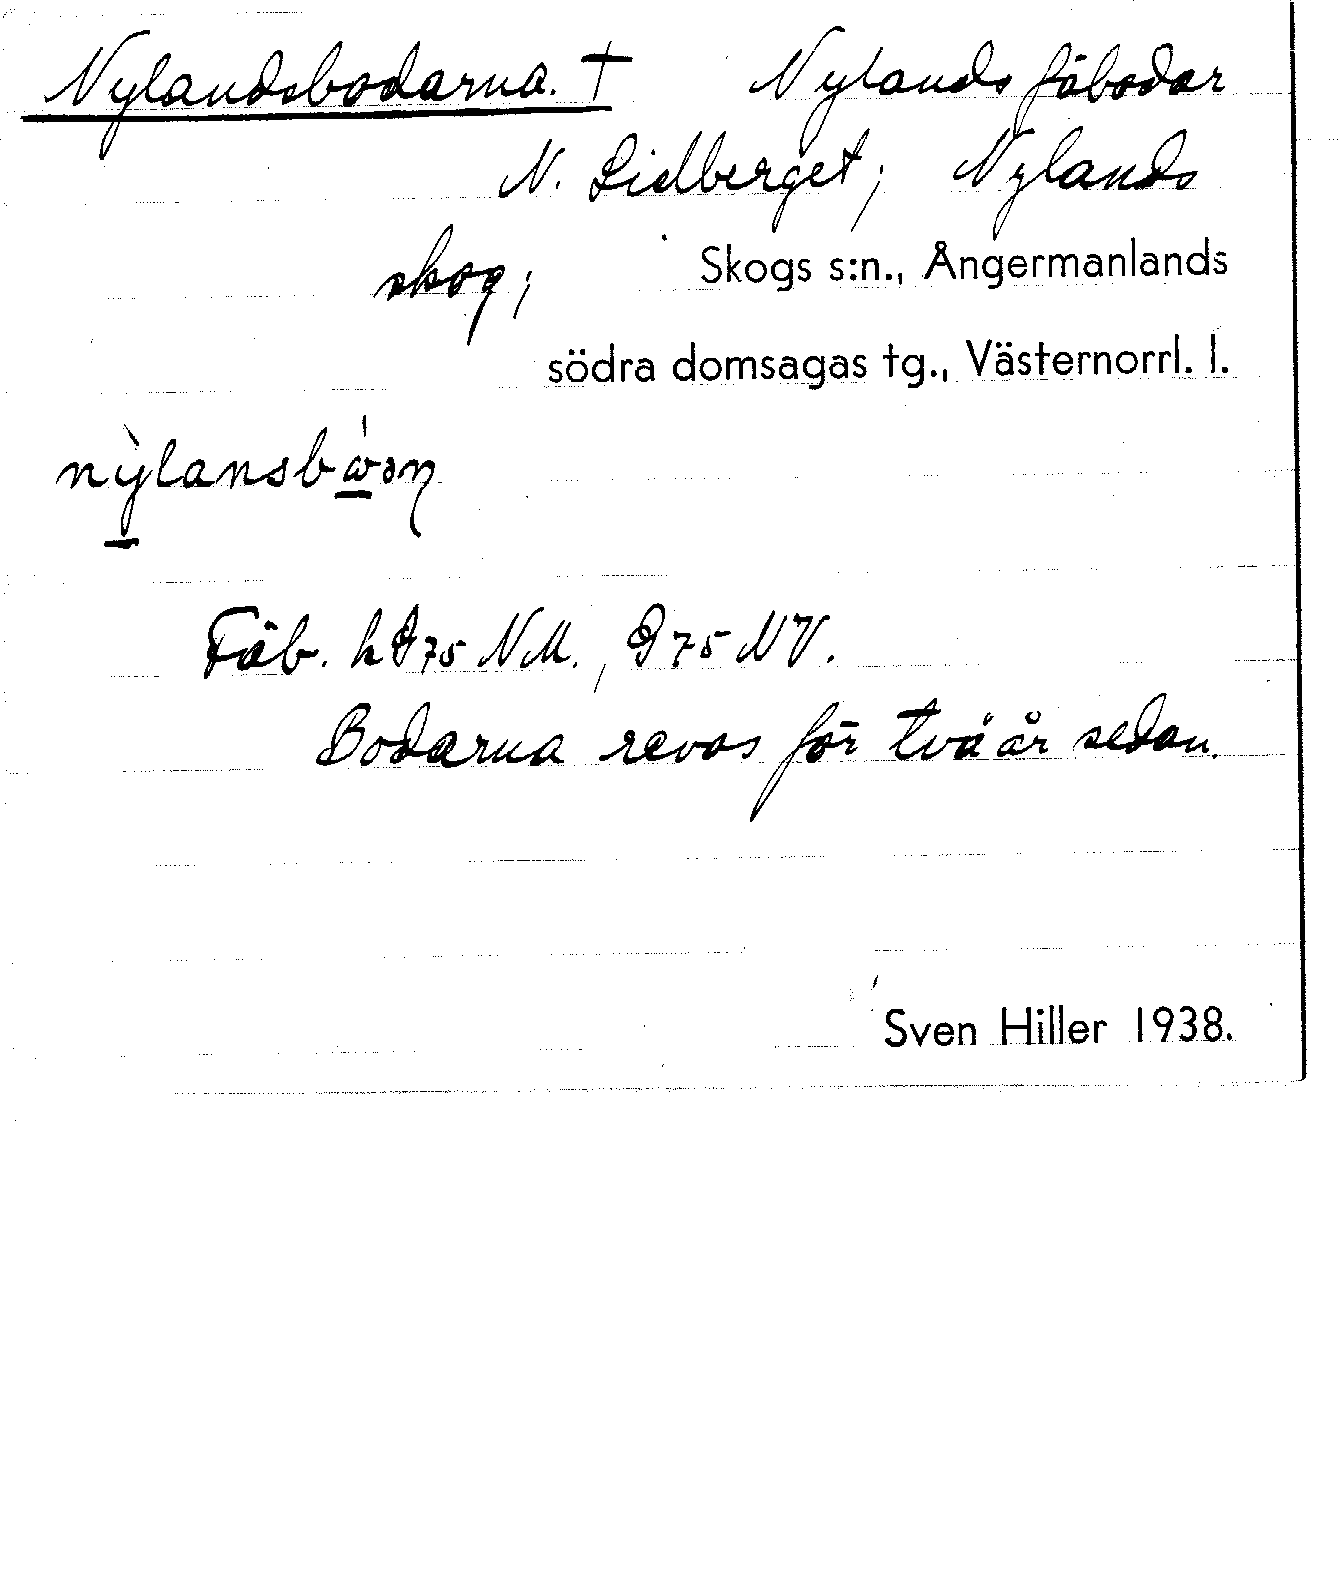 Nylandsbodarna. † Nylands fäbodar
N. Lidberget; Nylands
skog; Skogs s:n., Ångermanlands
södra domsagas tg., Västernorrl. l.
Fäb. h 75 NM., 75 NV.
Bodarna revos för två år sedan.
Sven Hiller 1938.